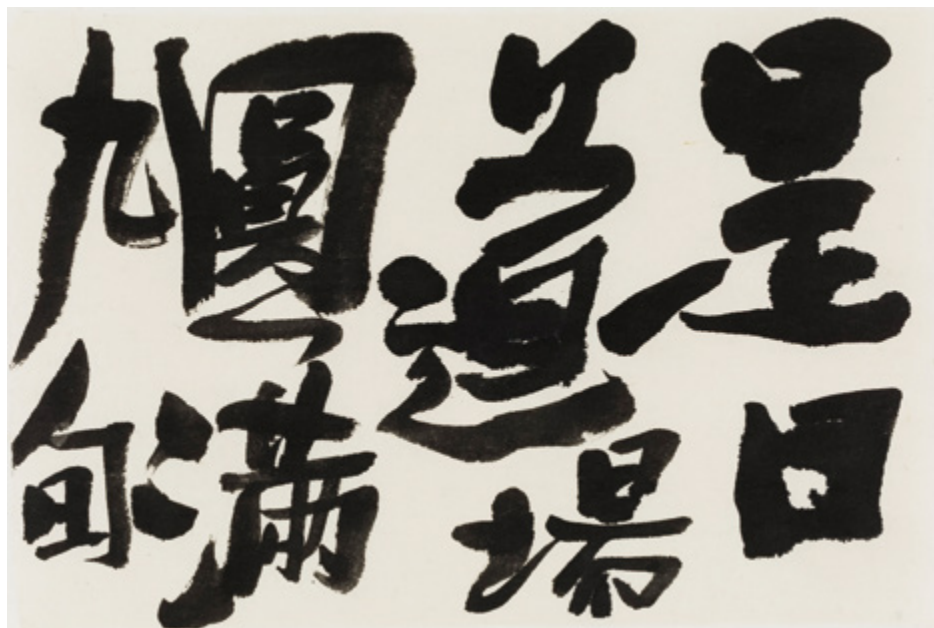 是日
道場
圓滿
九旬